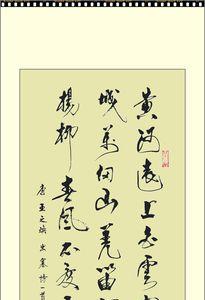 黄河遠上白雲
城萬仞山羌笛
楊柳春風不度
唐王之涣出塞詩一首